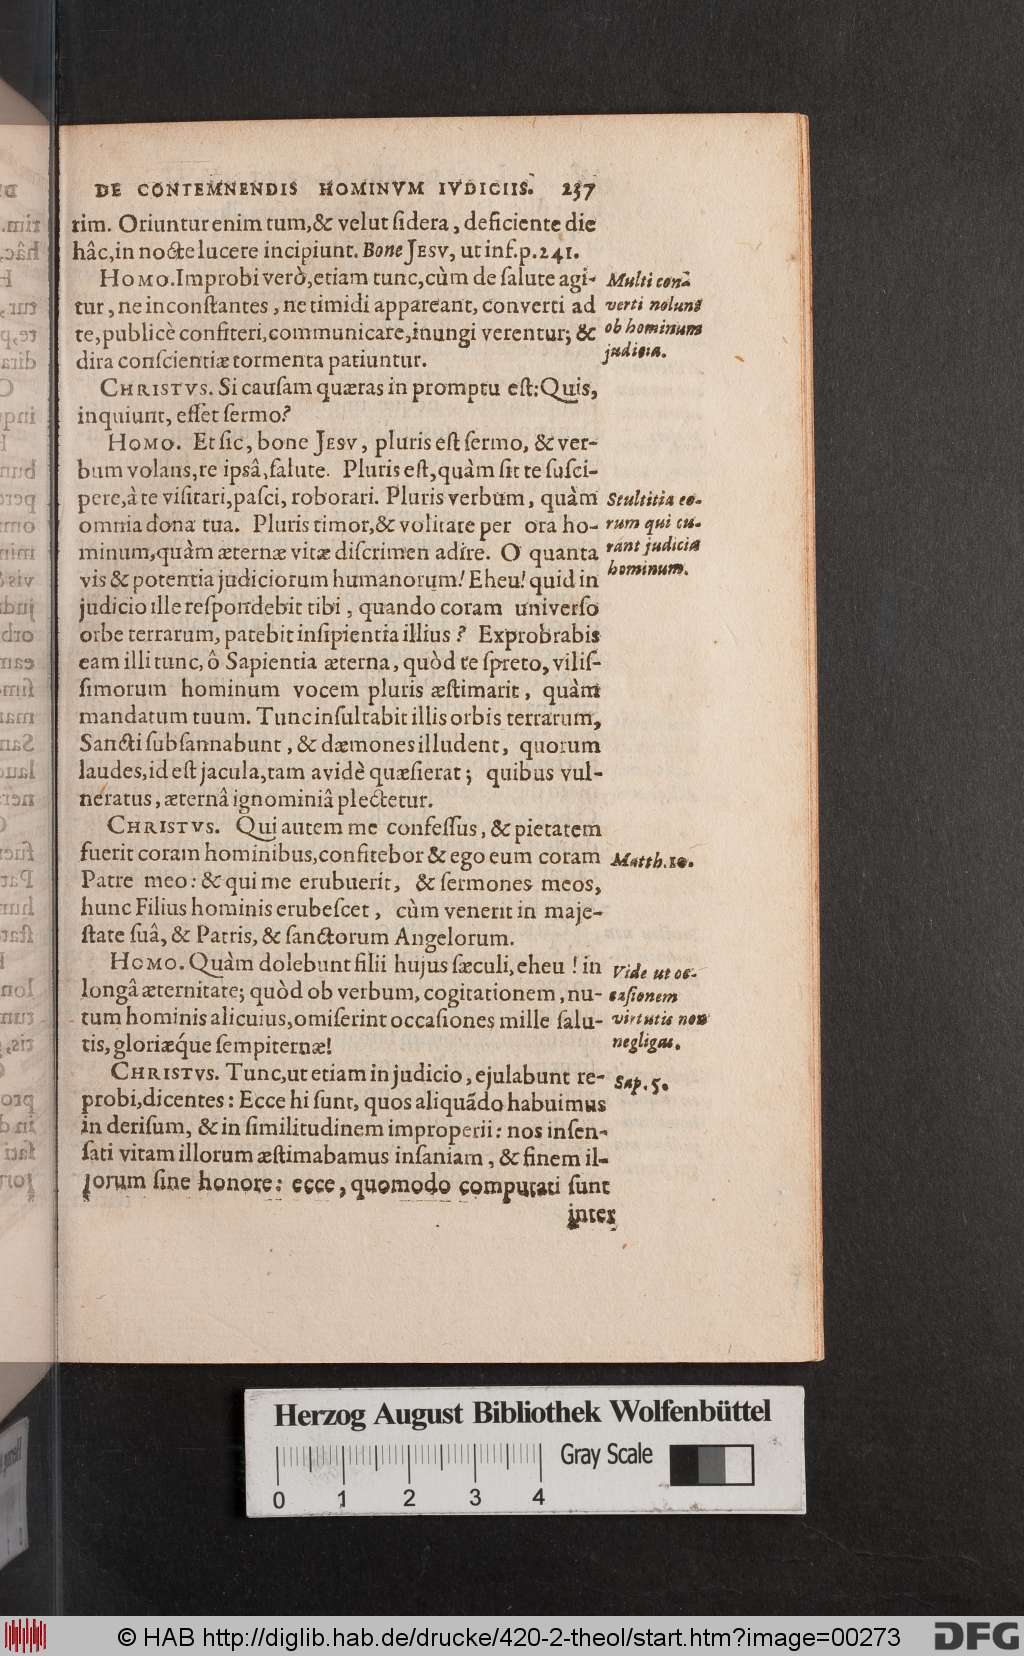 DE CONTEMNENDIS HOMINVM IVDICIIS. 237
rim. Oriuntur enim tum, & velut ſidera, deficiente die
hâc, in nocte lucere incipiunt. Bone JESV, ut inf. p. 241.
HOMO. Improbi verò, etiam tunc, cùm de ſalute agi-
tur, ne inconſtantes, ne timidi appareant, converti ad
te, publicè confiteri, communicare, inungi verentur; &
dira conſcientiæ tormenta patiuntur.
Multi con-
verti nolunt
ob hominum
judicia.
CHRISTVS. Si cauſam quæras in promptu eſt: Quis,
inquiunt, eſſet ſermo?
HOMO. Et ſic, bone JESV, pluris eſt ſermo, & ver-
bum volans, re ipsâ, ſalute. Pluris eſt, quàm ſit te ſuſci-
pere, à te viſitari, paſci, roborari. Pluris verbum, quàm
omnia dona tua. Pluris timor, & volitare per ora ho-
minum, quàm æternæ vitæ diſcrimen adire. O quanta
vis & potentia judiciorum humanorum! Eheu! quid in
judicio ille reſpondebit tibi, quando coram univerſo
orbe terrarum, patebit inſipientia illius? Exprobrabis
eam illi tunc, ô Sapientia æterna, quòd te ſpreto, viliſ-
ſimorum hominum vocem pluris æſtimarit, quàm
mandatum tuum. Tunc inſultabit illis orbis terrarum,
Sancti ſubſannabunt, & dæmones illudent, quorum
laudes, id eſt jacula, tam avidè quæſierat; quibus vul-
neratus, æternâ ignominiâ plectetur.
Stultitia eo-
rum qui cu-
rant judicia
hominum.
CHRISTVS. Qui autem me confeſſus, & pietatem
fuerit coram hominibus, confitebor & ego eum coram
Patre meo: & qui me erubuerit, & ſermones meos,
hunc Filius hominis erubeſcet, cùm venerit in maje-
ſtate ſuâ, & Patris, & ſanctorum Angelorum.
Matth. 10.
HOMO. Quàm dolebunt filii hujus ſæculi, eheu! in
longâ æternitate; quòd ob verbum, cogitationem, nu-
tum hominis alicuius, omiſerint occaſiones mille ſalu-
tis, gloriæq́ue ſempiternæ!
Vide ut oc-
caſionem
virtutis non
negligas.
CHRISTVS. Tunc, ut etiam in judicio, ejulabunt re-
probi, dicentes: Ecce hi ſunt, quos aliquãdo habuimus
in deriſum, & in ſimilitudinem improperii: nos inſen-
ſati vitam illorum æſtimabamus inſaniam, & finem il-
lorum ſine honore: ecce, quomodo computati ſunt
inter
Sap. 5.
Herzog August Bibliothek Wolfenbüttel
Gray Scale
0 1 2 3 4
© HAB http://diglib.hab.de/drucke/420-2-theol/start.htm?image=00273
DFG